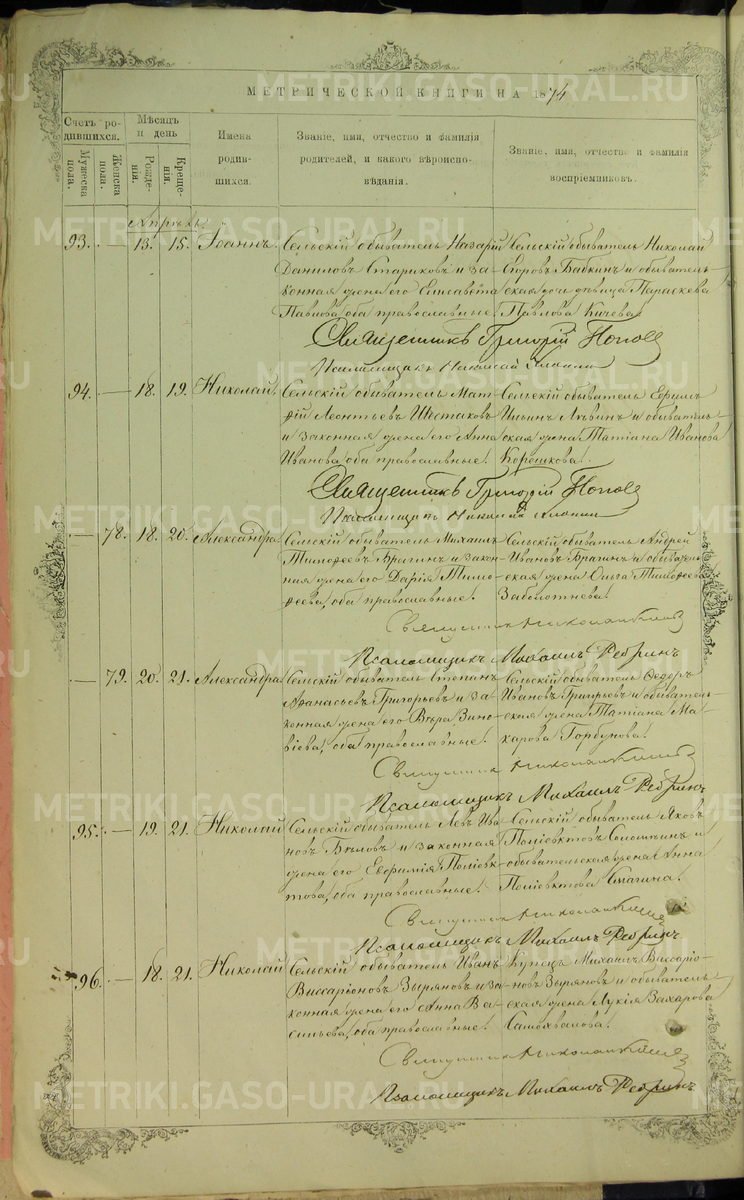 МЕТРИЧЕСКОЙ КНИГИ НА 1874
Счетъ родившихся.
Мужеска пола.
Женска пола.
Мѣсяцъ и день
Рожденія.
Крещенія.
Имена родившихся.
Званіе, имя, отчество и фамилія родителей, и какого вѣроисповѣданія.
Званіе, имя, отчество и фамилія воспріемниковъ.
Апрѣль
93. — 13. 15. Іоаннъ.
Сельскій обыватель Назарій
Даниловъ Стариковъ и за-
конная жена его Елисавета
Павлова, оба православные.
Сельскій обыватель Николай
Егоровъ Бабкинъ и обыватель-
ская дочь дѣвица Параскева
Павлова Кичева.
Священникъ Григорій Попов
94. — 18. 19. Николай.
Сельскій обыватель Мат-
ѳій Леонтьевъ Шестаковъ
и законная жена его Анна
Иванова, оба православные.
Сельскій обыватель Ефимъ
Ильинъ Львинъ и обыватель-
ская жена Татіана Иванова
Корешкова.
Священникъ Григорій Попов
— 78. 18. 20. Александра
Сельскій обыватель Михаилъ
Тимоѳеевъ Брагинъ и закон-
ная жена его Дарія Тимо-
ѳеева, оба православные.
Сельскій обыватель Андрей
Ивановъ Брагинъ и обыватель-
ская жена Ольга Тимоѳеева
Заболотнева.
Священникъ Николай
Псаломщикъ Михаилъ Ребринъ
— 79. 20. 21. Александра
Сельскій обыватель Степанъ
Аѳанасьевъ Григорьевъ и за-
конная жена его Вѣра Зино-
віева, оба православные.
Сельскій обыватель Ѳедоръ
Ивановъ Григорьевъ и обыватель-
ская жена Татіана Ма-
карова Горбунова.
Священникъ Николай
Псаломщикъ Михаилъ Ребринъ
95. — 19. 21. Николай
Сельскій обыватель Левъ Ива-
новъ Бѣловъ и законная
жена его Евфимія Поліевк-
това, оба православные.
Сельскій обыватель Яковъ
Поліевктовъ Соломкинъ и
обывательская жена Анна
Поліевктова Смагина.
Священникъ Николай
Псаломщикъ Михаилъ Ребринъ
96. — 18. 21. Николай
Сельскій обыватель Иванъ
Виссаріоновъ Зыряновъ и за-
конная жена его Анна Ва-
сильева, оба православные.
Купецъ Михаилъ Виссаріо-
новъ Зыряновъ и обыватель-
ская жена Лукія Захарова
Самохвалова.
Священникъ Николай
Псаломщикъ Михаилъ Ребринъ
METRIKI.GASO-URAL.RU